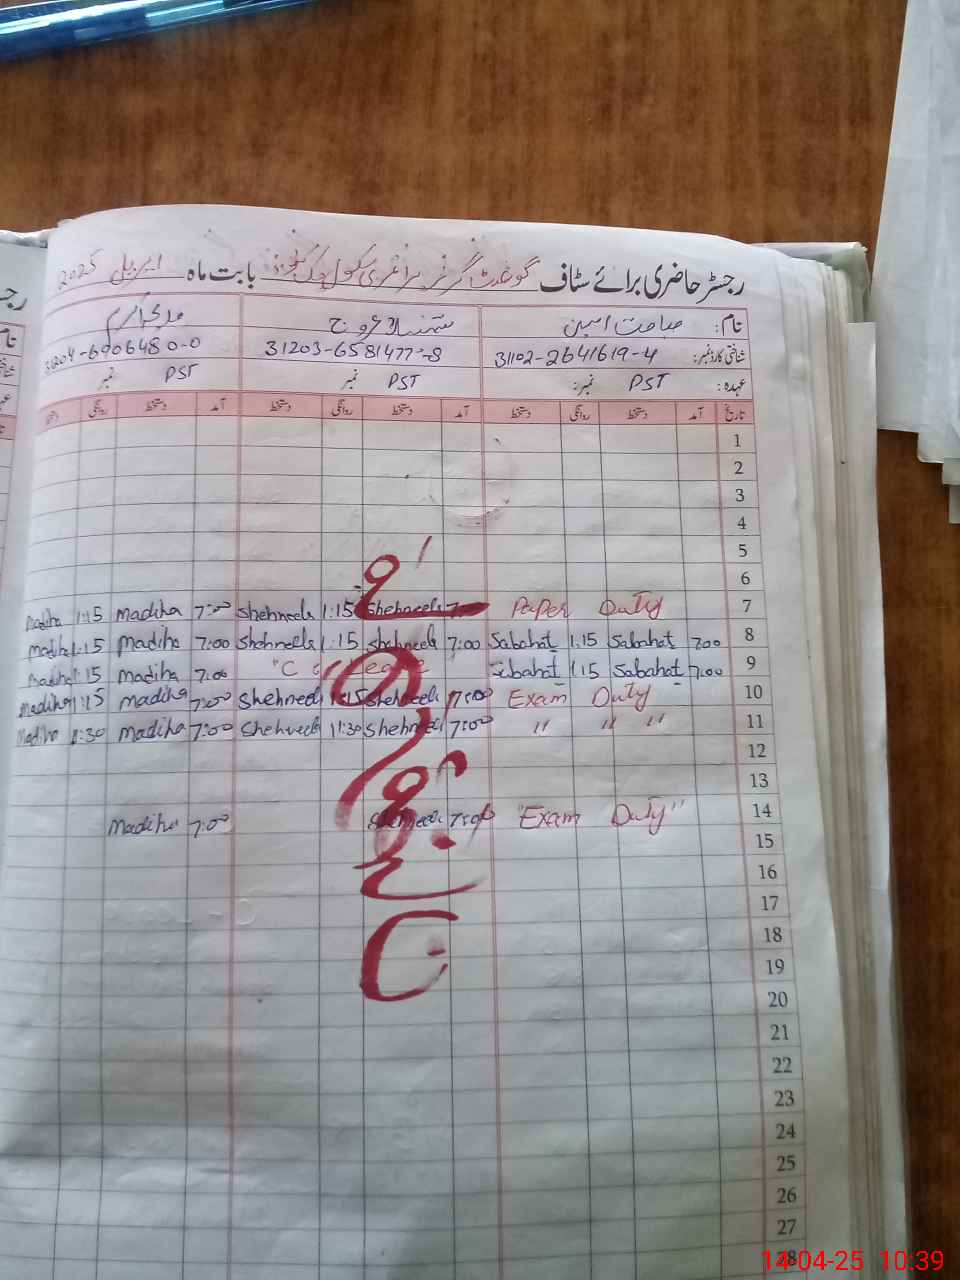 رجسٹر حاضری برائے سٹاف گورنمنٹ گرلز پرائمری سکول چک بابت ماہ اپریل 2025
نام: صباحت امین شہنیلا عروج مدیحہ اکرم
شناختی کارڈ نمبر: 31102-2641619-4 31203-6581477-8 31204-6906480-0
عہدہ: PST نمبر: PST نمبر PST نمبر
تاریخ آمد دستخط روانگی دستخط آمد دستخط روانگی دستخط آمد دستخط روانگی دستخط
1
2
3
4
5
6
Madiha 1:15 Madiha 7:00 Shehneela 1:15 Shehneela 7:00 Paper Duty 7
Madiha 1:15 Madiha 7:00 Shehneela 1:15 Shehneela 7:00 Sabahat 1:15 Sabahat 7:00 8
Madiha 1:15 Madiha 7:00 "C Leave Sabahat 1:15 Sabahat 7:00 9
Madiha 1:15 Madiha 7:00 Shehneela 1:15 Shehneela 7:00 Exam Duty 10
Madiha 11:30 Madiha 7:00 Shehneela 11:30 Shehneela 7:00 " " " 11
12
13
Madiha 7:00 Shehneela 7:00 "Exam Duty" 14
15
16
17
18
19
20
21
22
23
24
25
26
27
28
14-04-25 10:39